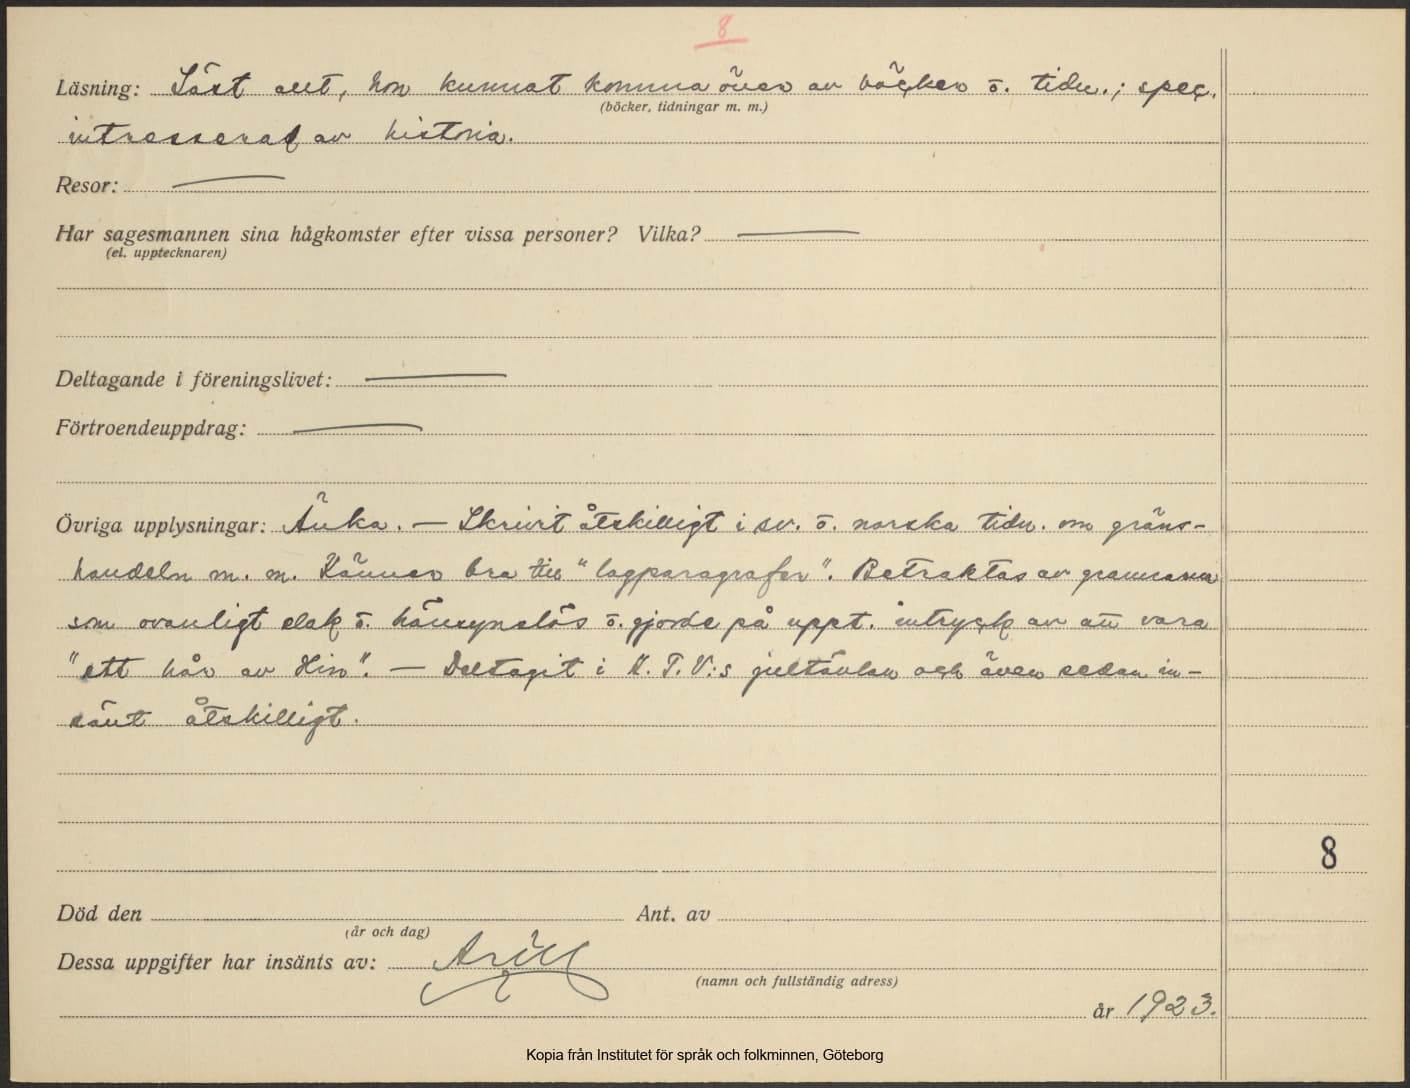 8
Läsning: Läst allt, hon kunnat komma över av böcker o. tidn.; spec.
(böcker, tidningar m. m.)
intresserad av historia.
Resor:
Har sagesmannen sina hågkomster efter vissa personer? Vilka?
(el. upptecknaren)
Deltagande i föreningslivet:
Förtroendeuppdrag:
Övriga upplysningar: Änka. — Skrivit åtskilligt i sv. o. norska tidn. om gräns-
handeln m. m. Känner bra till "lagparagrafer". Betraktas av grannarna
som ovanligt elak o. hänsynslös o. gjorde på uppt. intryck av att vara
"ett hår av Hin". — Deltagit i V.F.:s jultävlan och även sedan in-
sänt åtskilligt.
8
Död den Ant. av
(år och dag)
Dessa uppgifter har insänts av:
(namn och fullständig adress)
år 1923.
Kopia från Institutet för språk och folkminnen, Göteborg